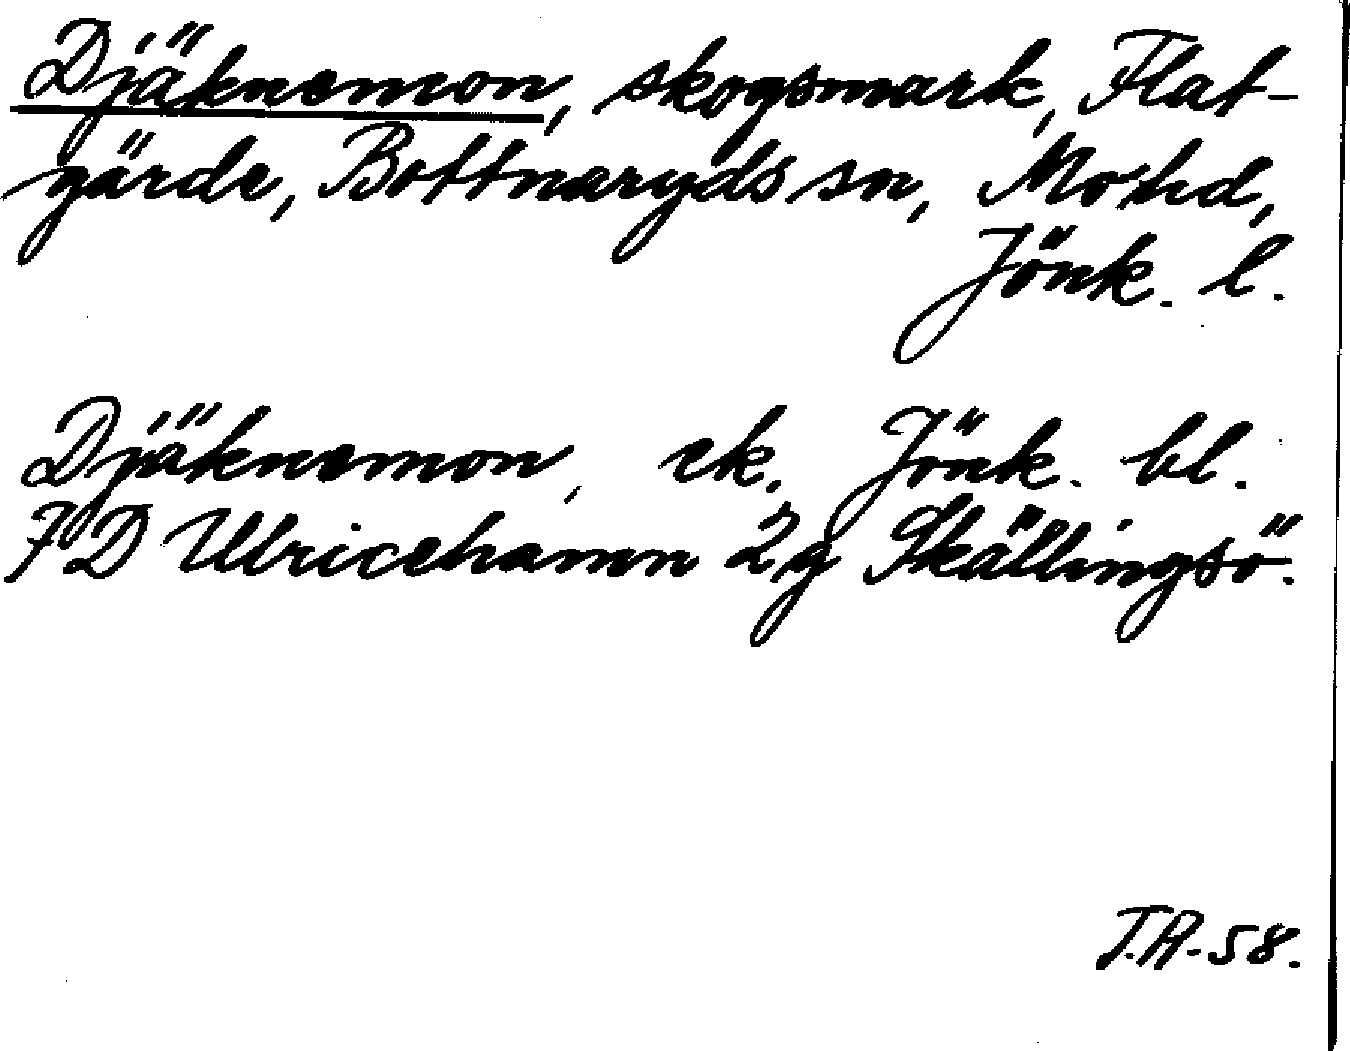 Djäknemon, skogsmark, Flat-
gärde, Bottnaryds sn, Mo hd,
Jönk. l.
Djäknemon, ek. Jönk. bl.
7D Ulricehamn 2g Skällingsö.
T.A-58.